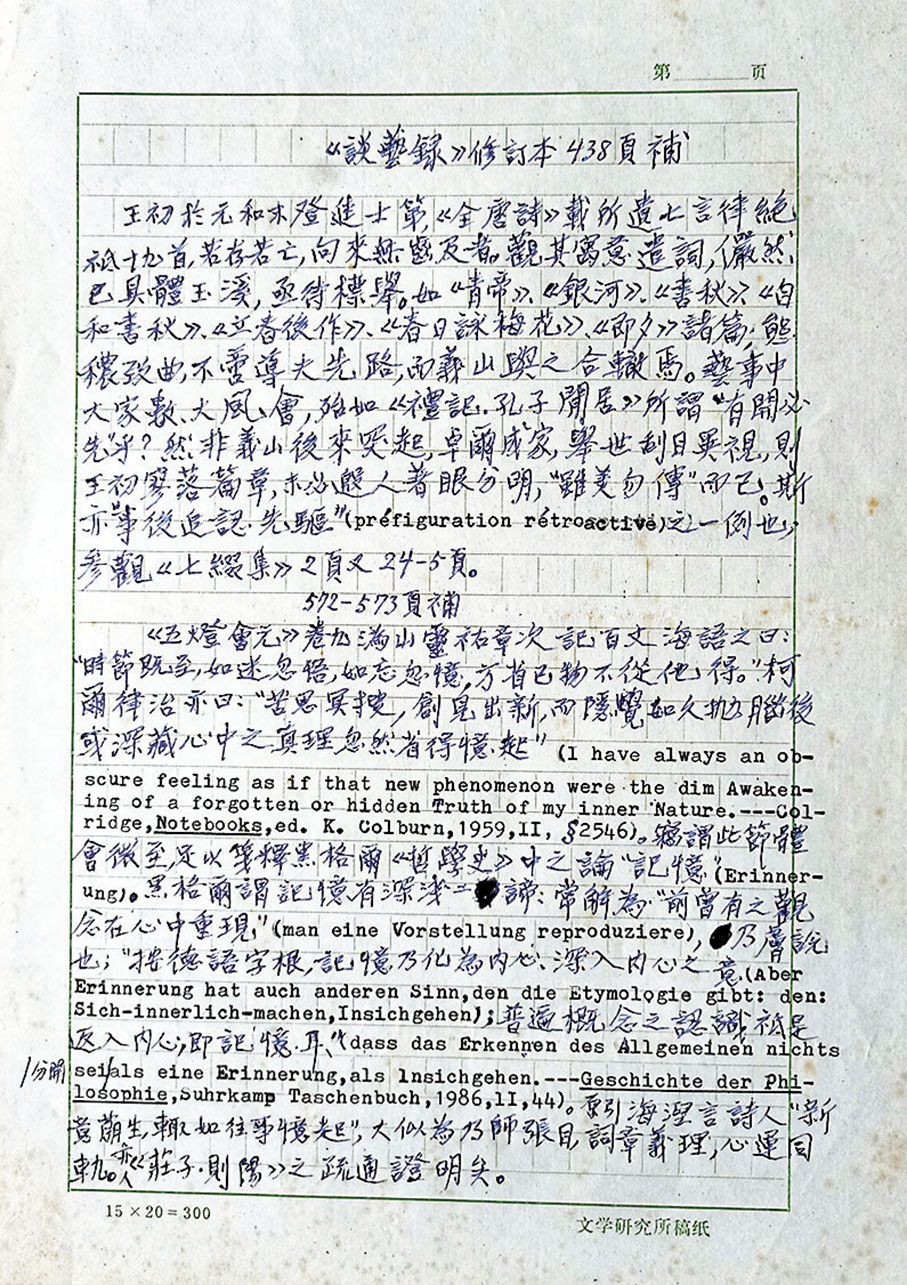 第 页
《談藝録》修訂本438頁補
王初於元和末登進士第,《全唐詩》載所遺七言律絶
祇十九首,若存若亡,向來無齒及者。觀其寓意遣詞,儼然
已具體玉溪,亟待標舉。如《青帝》、《銀河》、《書秋》、《自
和書秋》、《立春後作》、《春日詠梅花》、《即夕》諸篇,態
穠致曲,不啻導夫先路,而義山與之合轍焉。藝事中
大家數、大風會,殆如《禮記·孔子閒居》所謂"有開必
先"乎?然非義山後來突起,卓爾成家,舉世刮目異視,則
王初寥落篇章,未必盡人著眼分明,"雖美勿傳"而已。斯
亦"事後追認先驅"(préfiguration rétroactive)之一例也;
參觀《七綴集》2頁又24-5頁。
572-573頁補
《五燈會元》卷九溈山靈祐章次記百丈海語之曰:
"時節既至,如迷忽悟,如忘忽憶,方省已物不從他得。"柯
爾律治亦曰:"苦思冥搜,創見出新,而隱覺如久抛腦後
或深藏心中之真理忽然省得憶起"(I have always an ob-
scure feeling as if that new phenomenon were the dim Awaken-
ing of a forgotten or hidden Truth of my inner Nature.---Col-
ridge,Notebooks,ed. K. Colburn,1959,II, §2546)。竊謂此節體
會微至,足以箋釋黑格爾《哲學史》中之論"記憶"(Erinner-
ung)。黑格爾謂記憶有深淺二諦:常解為"前曾有之觀
念在心中重現"(man eine Vorstellung reproduziere),乃膚説
也;"按德語字根,記憶乃化為内心、深入内心之意(Aber
Erinnerung hat auch anderen Sinn,den die Etymologie gibt: den:
Sich-innerlich-machen,Insichgehen);普遍概念之認識祇是
返入内心,即記憶耳"(dass das Erkennen des Allgemeinen nichts
分開
sei/als eine Erinnerung,als lnsichgehen.---Geschichte der Phi-
losophie,Suhrkamp Taschenbuch,1986,lI,44)。原引海涅言詩人"新
意萌生,輒如往事憶起",大似為乃師張目,詞章義理,心運同
軌。亦《莊子·則陽》之疏通證明矣。
15×20=300
文学研究所稿纸